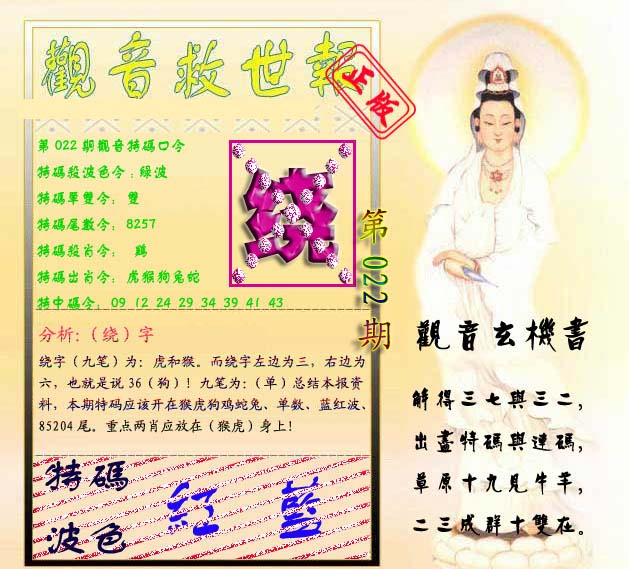 觀音救世報
正版
第022期觀音特碼口令
特碼殺波色令：綠波
特碼單雙令： 雙
特碼尾數令：8257
特碼殺肖令： 鷄
特碼出肖令：虎猴狗兔蛇
特中碼令：09 12 24 29 34 39 41 43
绕
第022期
分析:（绕）字
绕字（九笔）为：虎和猴。而绕字左边为三，右边为
六，也就是说36（狗）！九笔为：（单）总结本报资
料，本期特码应该开在猴虎狗鸡蛇兔、单数、蓝红波、
85204尾。重点两肖应放在（猴虎）身上！
特碼
波色
紅 藍
觀音玄機書
解得三七與三二，
出盡特碼與連碼，
草原十九見牛羊，
二三成群十雙在。